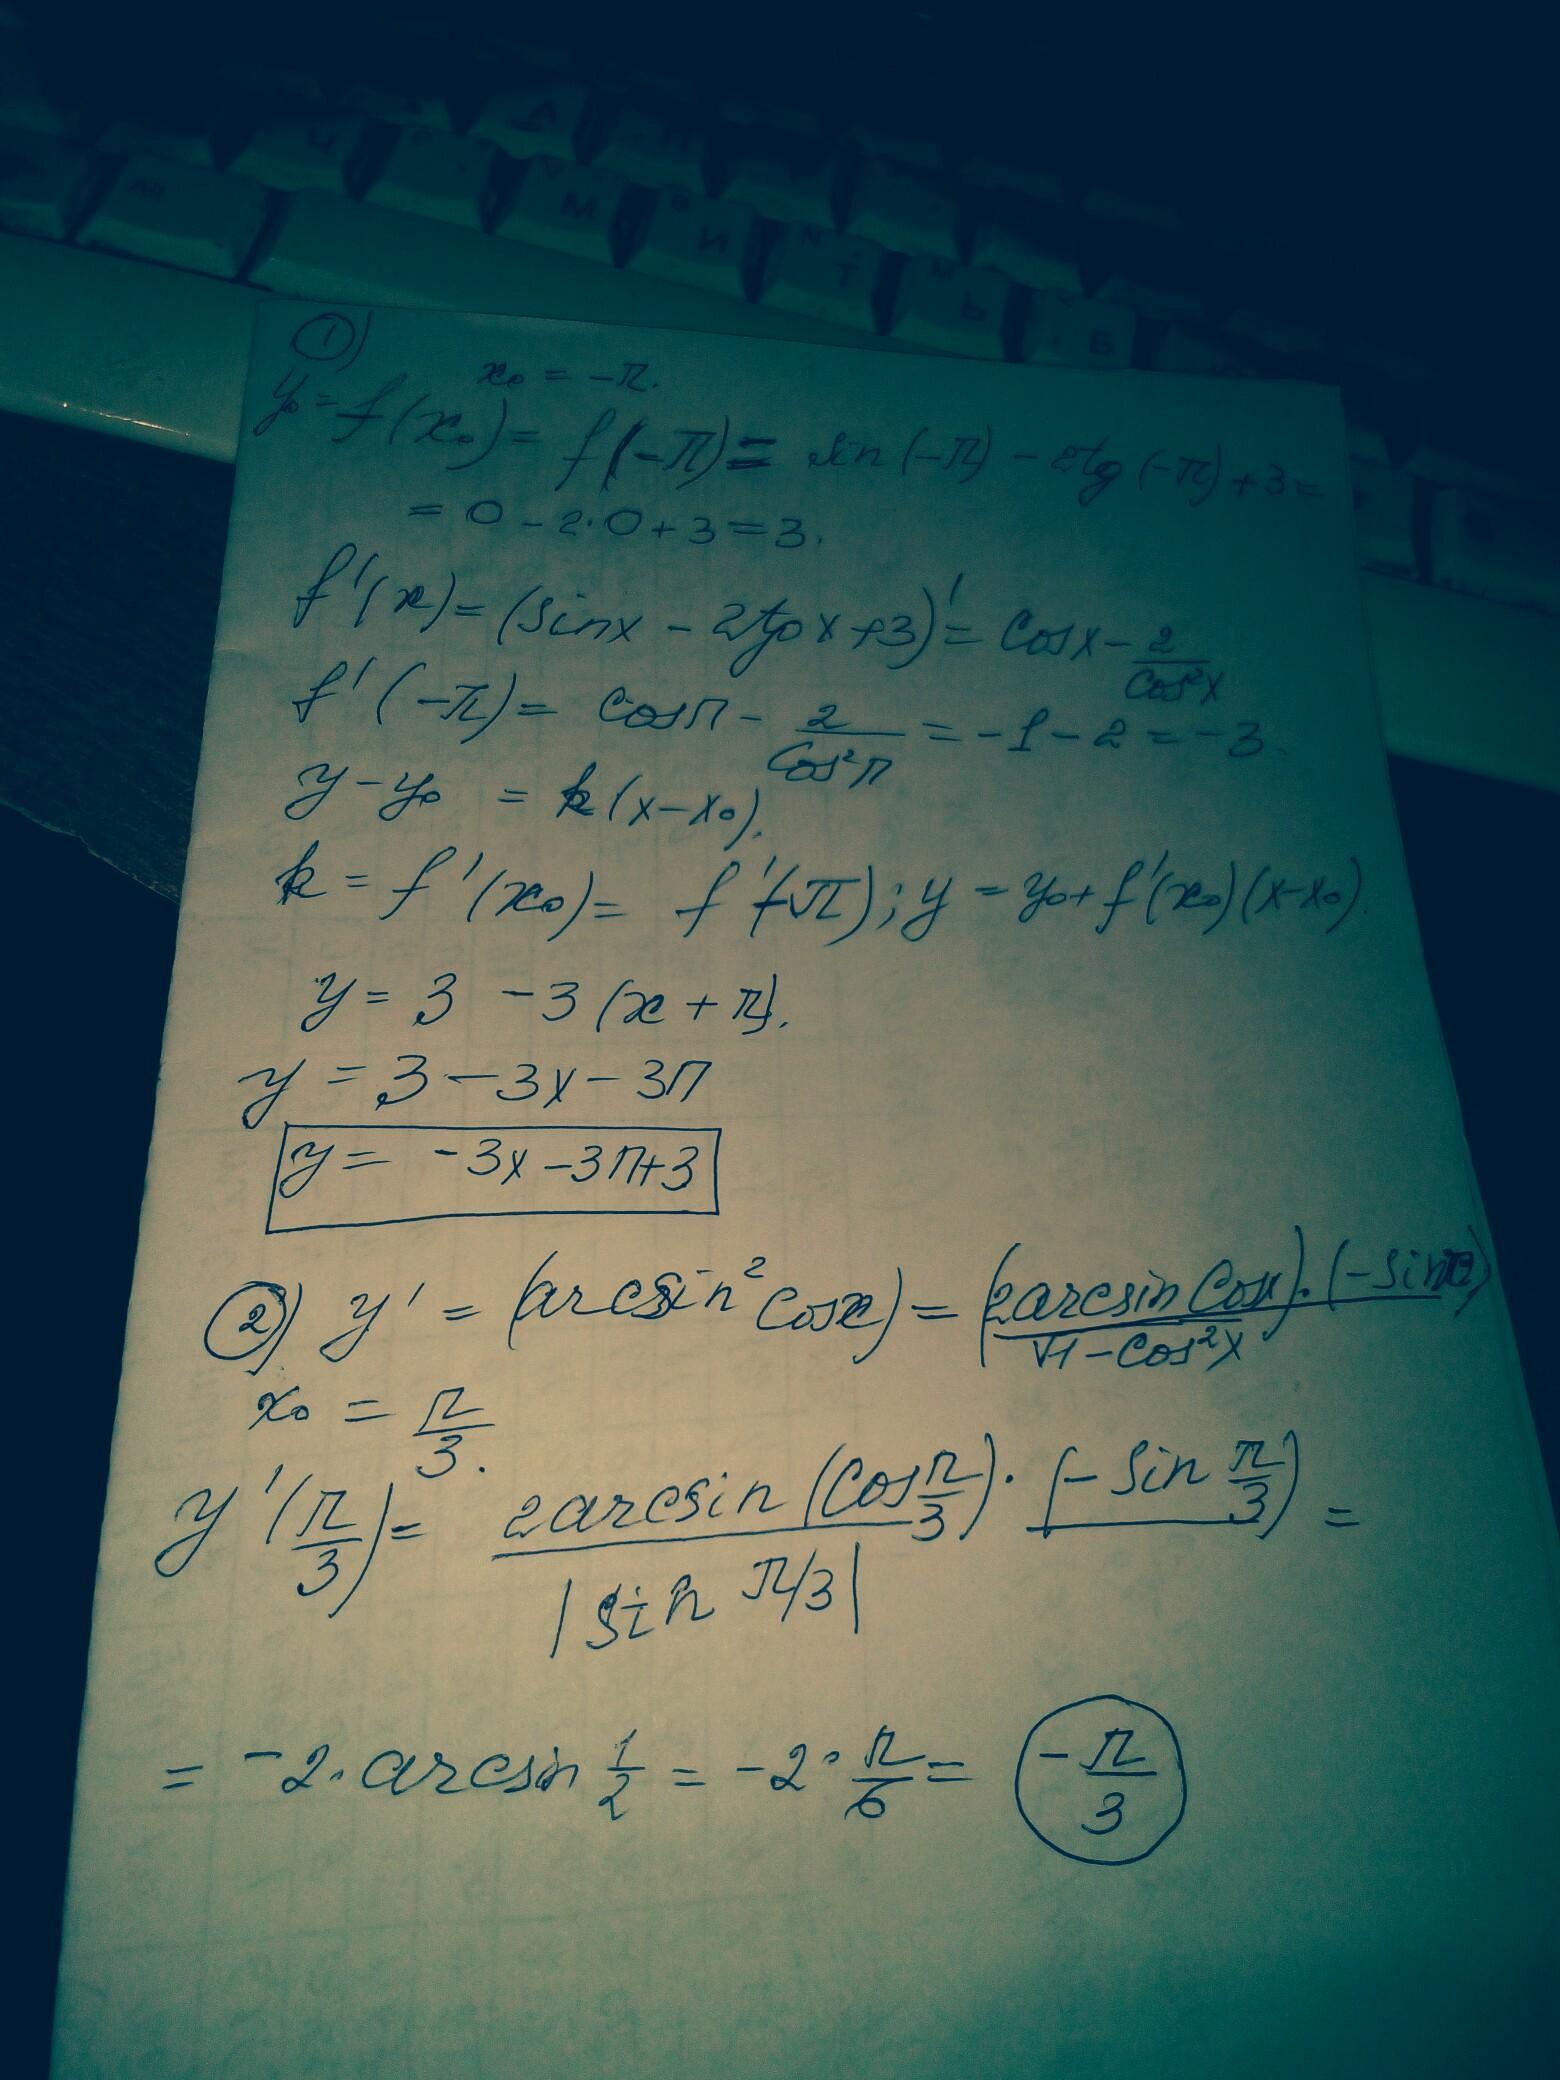 1)
x₀ = -π.
y₀ = f(x₀) = f(-π) = sin(-π) - 2tg(-π) + 3 =
= 0 - 2·0 + 3 = 3.
f'(x) = (sinx - 2tgx + 3)' = cosx - 2/cos²x
f'(-π) = cosπ - 2/cos²π = -1 - 2 = -3.
y - y₀ = k(x - x₀).
k = f'(x₀) = f'(-π); y = y₀ + f'(x₀)(x - x₀).
y = 3 - 3(x + π).
y = 3 - 3x - 3π
y = -3x - 3π + 3
2) y' = (arcsin² cosx) = (2arcsin cosx)·(-sinx)/√1-cos²x
x₀ = π/3.
y'(π/3) = 2arcsin(cos π/3)·(-sin π/3)/|sin π/3| =
= -2·arcsin 1/2 = -2·π/6 = -π/3